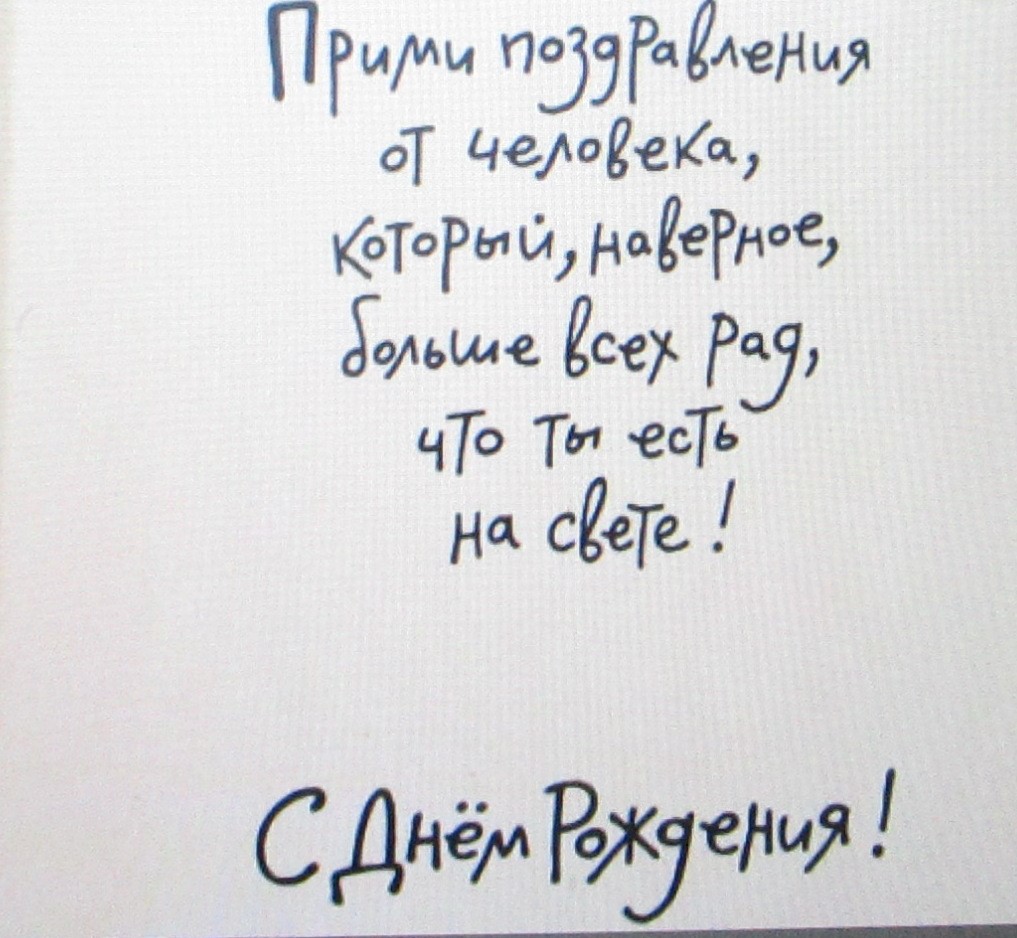 Прими поздравления
от человека,
который, наверное,
больше всех рад,
что ты есть
на свете!
С Днём Рождения!